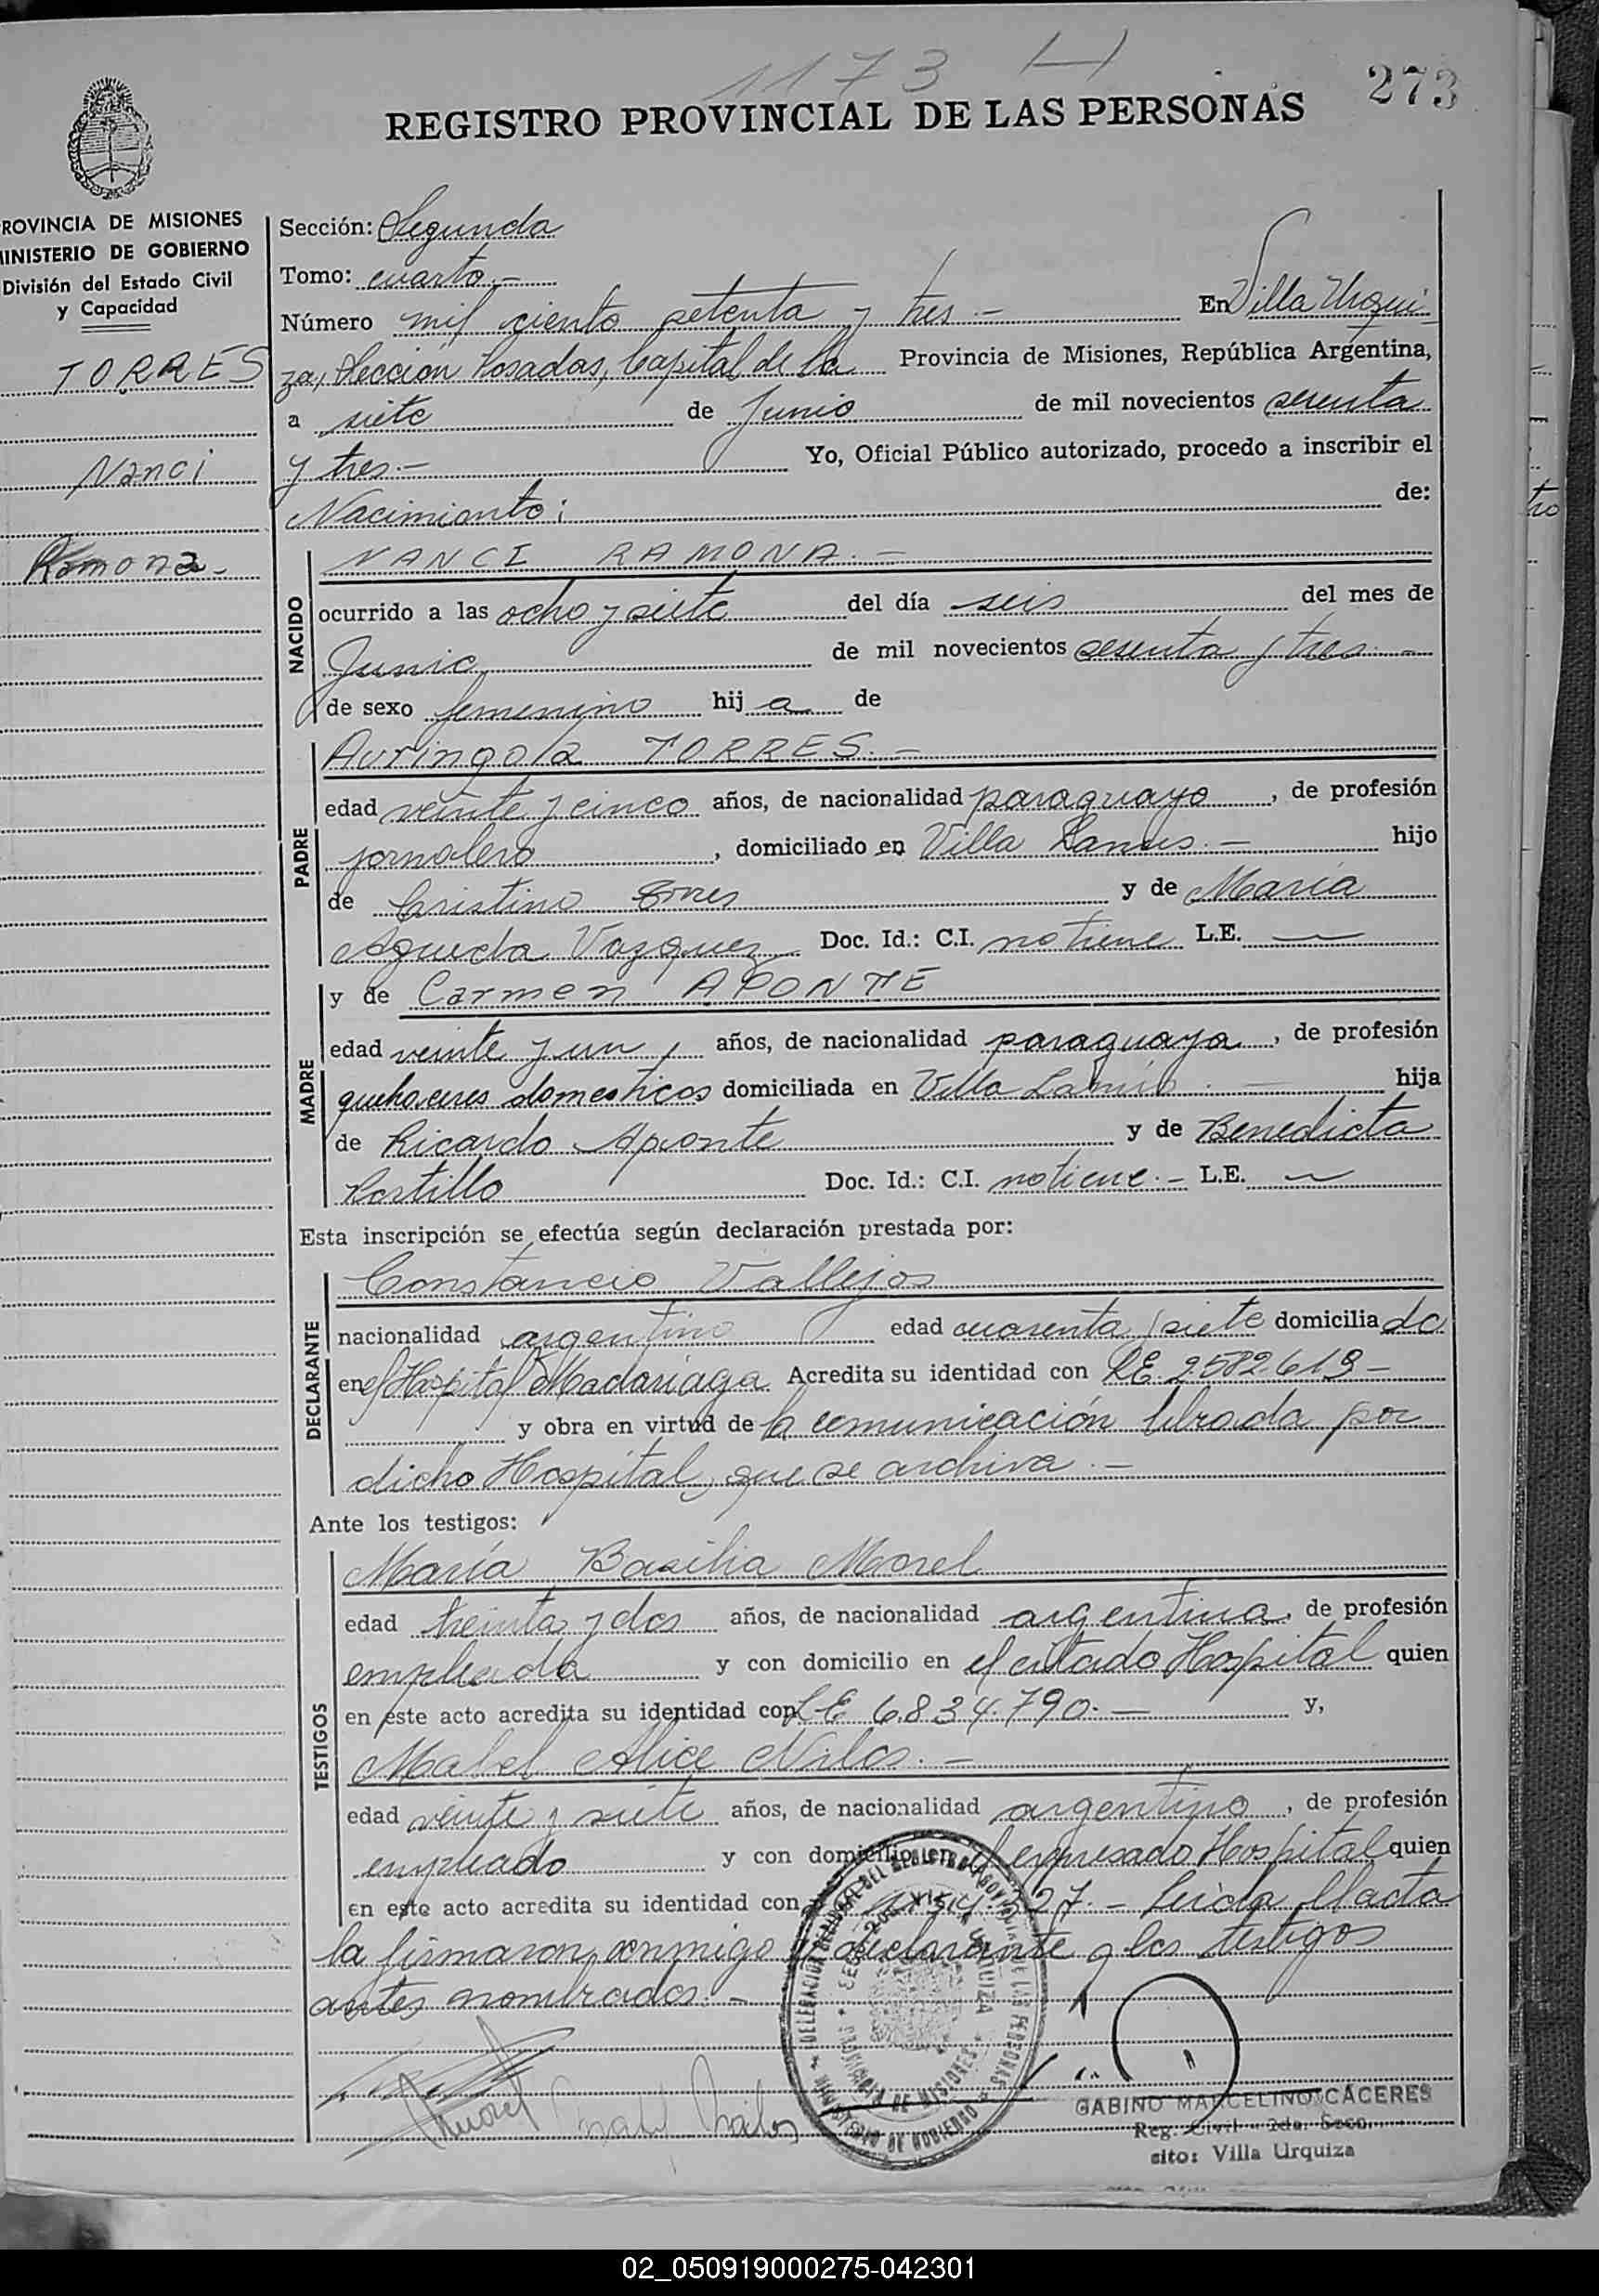 1173 H
273
REGISTRO PROVINCIAL DE LAS PERSONAS
ROVINCIA DE MISIONES
INISTERIO DE GOBIERNO
División del Estado Civil
y Capacidad
TORRES
Nanci
Ramona-
Sección: Segunda
Tomo: cuarto.-
Número mil ciento setenta y tres.- En Villa Urqui
za, Sección Posadas, Capital de la Provincia de Misiones, República Argentina,
a siete de Junio de mil novecientos sesenta
y tres.- Yo, Oficial Público autorizado, procedo a inscribir el
Nacimiento: de:
NACIDO
NANCI RAMONA.-
ocurrido a las ocho y siete del día seis del mes de
Junio de mil novecientos sesenta y tres.-
de sexo femenino hij a de
PADRE
TORRES.-
edad veinte y cinco años, de nacionalidad paraguayo, de profesión
jornalero, domiciliado en Villa hijo
de Cristino Torres y de María
Agueda Vazquez Doc. Id.: C.I. no tiene L.E. —
MADRE
y de Carmen APONTE
edad veinte y un años, de nacionalidad paraguaya, de profesión
quehaceres domesticos domiciliada en Villa hija
de Ricardo Aponte y de Benedicta
Portillo Doc. Id.: C.I. no tiene.- L.E. —
Esta inscripción se efectúa según declaración prestada por:
DECLARANTE
Constancio Vallejos
nacionalidad argentino edad cuarenta y siete domicilia do
en el Hospital Madariaga Acredita su identidad con LE 2.582.619-
y obra en virtud de la comunicación librada por
dicho Hospital, que se archiva.-
Ante los testigos:
TESTIGOS
María Basilia Morel
edad treinta y dos años, de nacionalidad argentina, de profesión
empleada y con domicilio en el citado Hospital quien
en este acto acredita su identidad con LE 6.834.790.- y,
Mabel Alice
edad veinte y siete años, de nacionalidad argentino, de profesión
empleado y con domicilio en el expresado Hospital quien
en este acto acredita su identidad con 327.- Leida el acta
la firmaron conmigo el declarante y los testigos
antes nombrados.-
Morel
DELEGACION SECCIONAL DEL REGISTRO PROVINCIAL DE LAS PERSONAS
VILLA URQUIZA
PROVINCIA DE MISIONES
MINISTERIO DE GOBIERNO
GABINO MARCELINO CÁCERES
Reg. Civil - 2da. Secc.
sito: Villa Urquiza
02_050919000275-042301